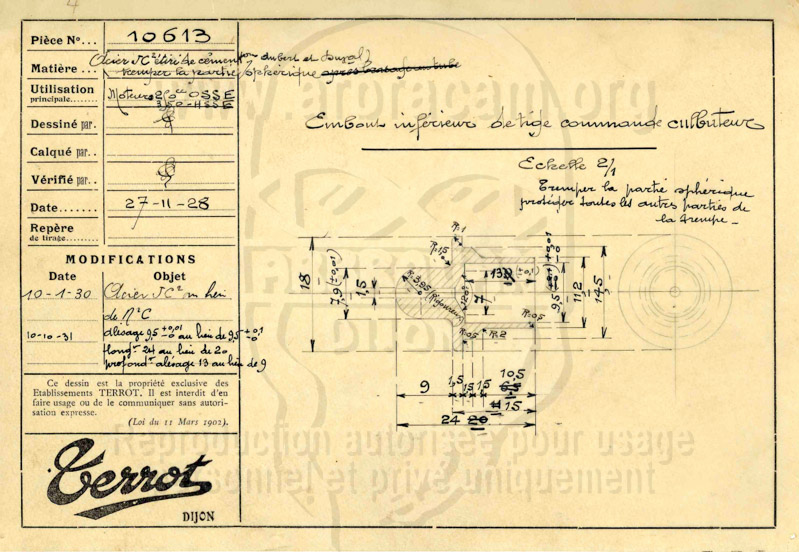 4
Pièce Nº... 10613
Matière... Acier NC² étiré de cément^on Aubert et Duval
tremper la partie sphérique après brasage au tube
Utilisation
principale... Moteurs 250cc OSSE
350 HSSE
Dessiné par.
Calqué par..
Vérifié par.
Date....... 27-11-28
Repère
de tirage....
MODIFICATIONS
Date Objet
10-1-30 Acier NC² au lieu
de N²C
10-10-31 alésage 9,5 +0,01 -0 au lieu de 9,5 +0,1 -0
longr 24 au lieu de 20
profondr alésage 13 au lieu de 9
Ce dessin est la propriété exclusive des
Etablissements TERROT. Il est interdit d'en
faire usage ou de le communiquer sans autori-
sation expresse.
(Loi du 11 Mars 1902).
Terrot
DIJON
www.aroracam.org
Embout inférieur de tige commande culbuteurs
Echelle 2/1
Tremper la partie sphérique
protéger toutes les autres parties de
la trempe.
R.1
R.1,5
18
7,9 (±0,01)
1,5
R.3,95 (Rigoureux)
120°
13
(±0,1)
7
9,5 +0,01 -0
11,2
14,5
R.0,5
R.0,5
R.2
9
1,5
1,5
1,5
10,5
6,5
11 15
24 20
Reproduction autorisée pour usage
personnel et privé uniquement